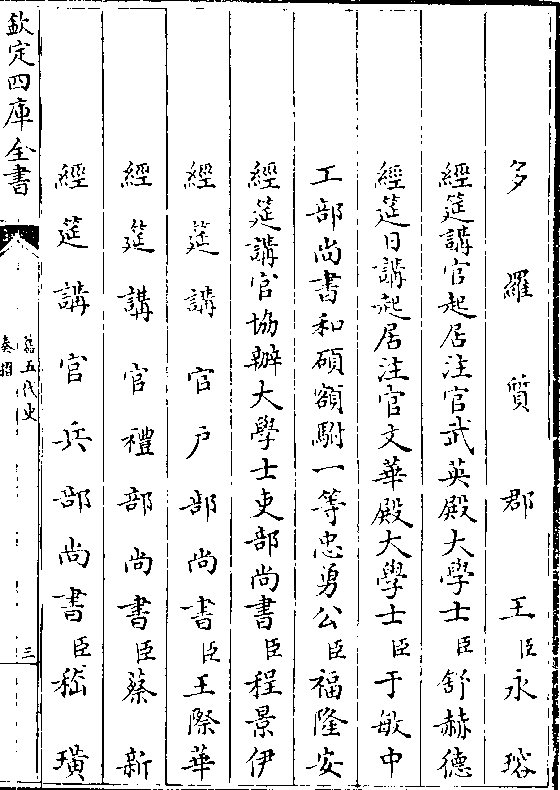 多羅質郡王臣永瑢
經筵講官起居注官武英殿大學士臣舒赫德
經筵日講起居注官文華殿大學士臣于敏中
工部尚書和碩額駙一等忠勇公臣福隆安
經筵講官協辦大學士吏部尚書臣程景伊
經筵講官戶部尚書臣王際華
經筵講官禮部尚書臣蔡新
經筵講官兵部尚書臣嵇璜
欽定四庫全書
舊五代史
奏摺
三